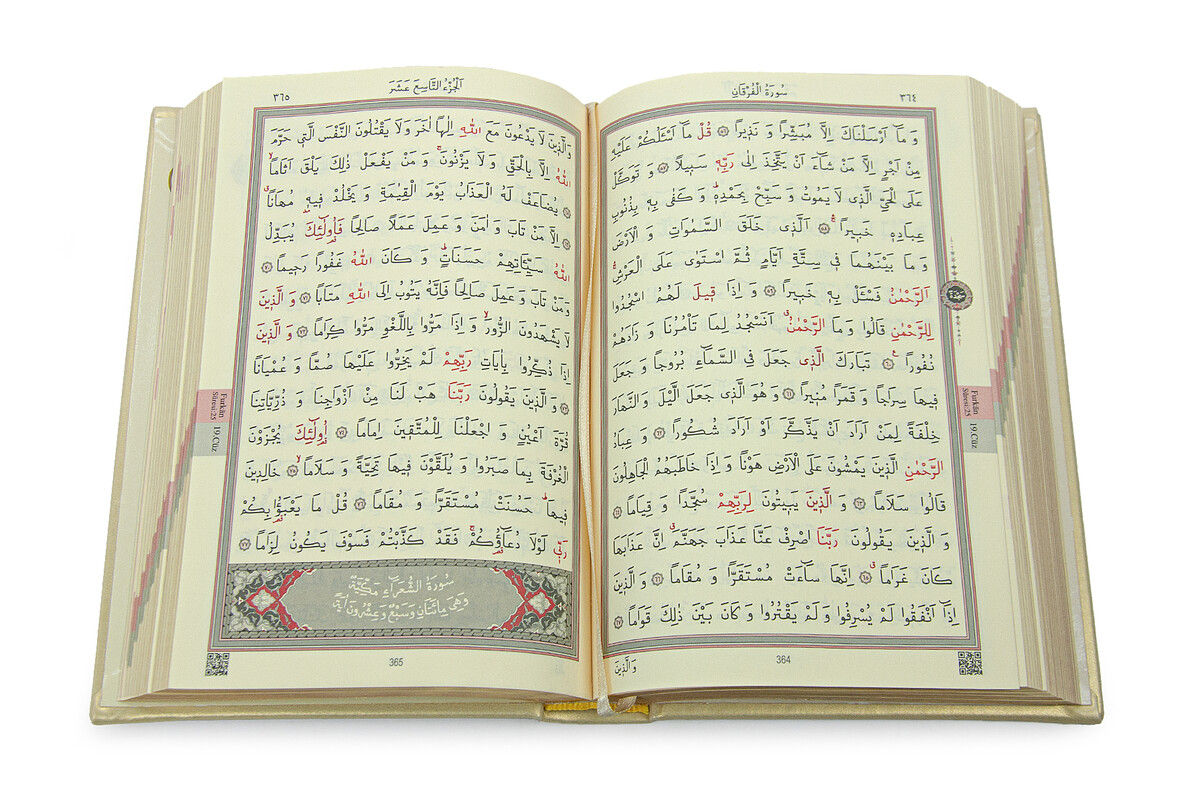 سُورَةُ الْفُرْقَانِ
٣٦٤
وَمَٓا اَرْسَلْنَاكَ اِلَّا مُبَشِّرًا وَنَذٖيرًا ﴿٥٦﴾ قُلْ مَٓا اَسْـَٔلُكُمْ عَلَيْهِ
مِنْ اَجْرٍ اِلَّا مَنْ شَٓاءَ اَنْ يَتَّخِذَ اِلٰى رَبِّهٖ سَبٖيلًا ﴿٥٧﴾ وَتَوَكَّلْ
عَلَى الْحَيِّ الَّذٖي لَا يَمُوتُ وَسَبِّحْ بِحَمْدِهٖۜ وَكَفٰى بِهٖ بِذُنُوبِ
عِبَادِهٖ خَبٖيرًاۚۛ ﴿٥٨﴾ اَلَّذٖي خَلَقَ السَّمٰوَاتِ وَالْاَرْضَ
وَمَا بَيْنَهُمَا فٖي سِتَّةِ اَيَّامٍ ثُمَّ اسْتَوٰى عَلَى الْعَرْشِۚۛ
اَلرَّحْمٰنُ فَسْـَٔلْ بِهٖ خَبٖيرًا ﴿٥٩﴾ وَاِذَا قٖيلَ لَهُمُ اسْجُدُوا
لِلرَّحْمٰنِ قَالُوا وَمَا الرَّحْمٰنُۗ اَنَسْجُدُ لِمَا تَأْمُرُنَا وَزَادَهُمْ
نُفُورًا ﴿٦٠﴾ تَبَارَكَ الَّذٖي جَعَلَ فِي السَّمَٓاءِ بُرُوجًا وَجَعَلَ
فٖيهَا سِرَاجًا وَقَمَرًا مُنٖيرًا ﴿٦١﴾ وَهُوَ الَّذٖي جَعَلَ الَّيْلَ وَالنَّهَارَ
خِلْفَةً لِمَنْ اَرَادَ اَنْ يَذَّكَّرَ اَوْ اَرَادَ شُكُورًا ﴿٦٢﴾ وَعِبَادُ
الرَّحْمٰنِ الَّذٖينَ يَمْشُونَ عَلَى الْاَرْضِ هَوْنًا وَاِذَا خَاطَبَهُمُ الْجَاهِلُونَ
قَالُوا سَلَامًا ﴿٦٣﴾ وَالَّذٖينَ يَبٖيتُونَ لِرَبِّهِمْ سُجَّدًا وَقِيَامًا ﴿٦٤﴾
وَالَّذٖينَ يَقُولُونَ رَبَّنَا اصْرِفْ عَنَّا عَذَابَ جَهَنَّمَۗ اِنَّ عَذَابَهَا
كَانَ غَرَامًاۗ ﴿٦٥﴾ اِنَّهَا سَٓاءَتْ مُسْتَقَرًّا وَمُقَامًا ﴿٦٦﴾ وَالَّذٖينَ
اِذَٓا اَنْفَقُوا لَمْ يُسْرِفُوا وَلَمْ يَقْتُرُوا وَكَانَ بَيْنَ ذٰلِكَ قَوَامًا ﴿٦٧﴾
وَالَّذٖينَ
364
سَجْدَة
Furkân
Sûresi:25
19 Cüz
اَلْجُزْءُ التَّاسِعَ عَشَرَ
٣٦٥
وَالَّذٖينَ لَا يَدْعُونَ مَعَ اللّٰهِ اِلٰهًا اٰخَرَ وَلَا يَقْتُلُونَ النَّفْسَ الَّتٖي حَرَّمَ
اللّٰهُ اِلَّا بِالْحَقِّ وَلَا يَزْنُونَۚ وَمَنْ يَفْعَلْ ذٰلِكَ يَلْقَ اَثَامًاۙ
﴿٦٨﴾ يُضَاعَفْ لَهُ الْعَذَابُ يَوْمَ الْقِيٰمَةِ وَيَخْلُدْ فٖيهٖ مُهَانًاۗ
﴿٦٩﴾ اِلَّا مَنْ تَابَ وَاٰمَنَ وَعَمِلَ عَمَلًا صَالِحًا فَاُو۬لٰٓئِكَ يُبَدِّلُ
اللّٰهُ سَيِّـَٔاتِهِمْ حَسَنَاتٍۜ وَكَانَ اللّٰهُ غَفُورًا رَحٖيمًا ﴿٧٠﴾
وَمَنْ تَابَ وَعَمِلَ صَالِحًا فَاِنَّهُ يَتُوبُ اِلَى اللّٰهِ مَتَابًا ﴿٧١﴾ وَالَّذٖينَ
لَا يَشْهَدُونَ الزُّورَۙ وَاِذَا مَرُّوا بِاللَّغْوِ مَرُّوا كِرَامًا ﴿٧٢﴾ وَالَّذٖينَ
اِذَا ذُكِّرُوا بِاٰيَاتِ رَبِّهِمْ لَمْ يَخِرُّوا عَلَيْهَا صُمًّا وَعُمْيَانًا
﴿٧٣﴾ وَالَّذٖينَ يَقُولُونَ رَبَّنَا هَبْ لَنَا مِنْ اَزْوَاجِنَا وَذُرِّيَّاتِنَا
قُرَّةَ اَعْيُنٍ وَاجْعَلْنَا لِلْمُتَّقٖينَ اِمَامًا ﴿٧٤﴾ اُو۬لٰٓئِكَ يُجْزَوْنَ
الْغُرْفَةَ بِمَا صَبَرُوا وَيُلَقَّوْنَ فٖيهَا تَحِيَّةً وَسَلَامًاۙ ﴿٧٥﴾ خَالِدٖينَ
فٖيهَاۜ حَسُنَتْ مُسْتَقَرًّا وَمُقَامًا ﴿٧٦﴾ قُلْ مَا يَعْبَؤُ۬ا بِكُمْ
رَبّٖي لَوْلَا دُعَٓاؤُ۬كُمْۚ فَقَدْ كَذَّبْتُمْ فَسَوْفَ يَكُونُ لِزَامًا ﴿٧٧﴾
سُورَةُ الشُّعَرَٓاءِ مَكِّيَّةٌ
وَهِيَ مِائَتَانِ وَسَبْعٌ وَعِشْرُونَ اٰيَةً
365
Furkân
Sûresi:25
19 Cüz